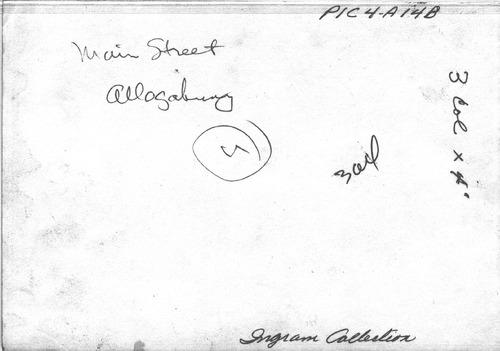 PIC4-A14B
Main Street
Allogabung
4
3 col
3 col x 4"
Ingram Collection